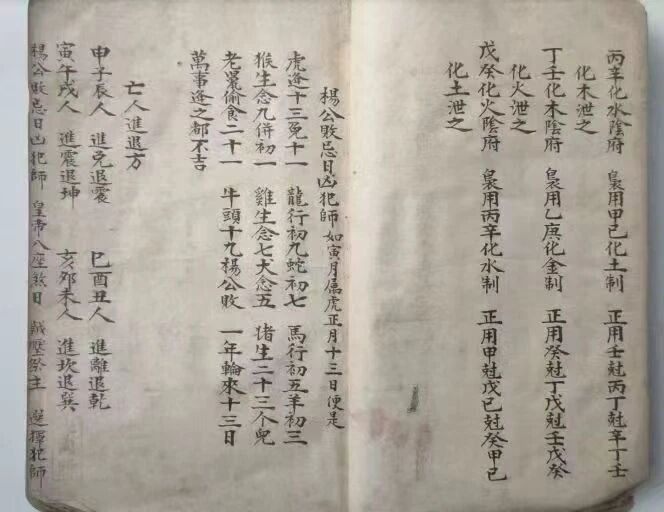 丙辛化水陰府 裊用甲已化土制 正用壬尅丙丁尅辛丁壬
化木泄之
丁壬化木陰府 裊用乙庚化金制 正用癸尅丁戊尅壬戊癸
化火泄之
戊癸化火陰府 裊用丙辛化水制 正用甲尅戊已尅癸甲已
化土泄之
楊公敗忌日凶犯師如寅月屬虎正月十三日便是
虎逢十三兔十一 龍行初九蛇初七 馬行初五羊初三
猴生念九併初一 雞生念七犬念五 猪生二十三个兒
老鼠偷食二十一 牛頭十九楊公敗 一年輪來十三日
萬事逢之都不吉
亡人進退方
申子辰人 進兑退震 巳酉丑人 進離退乾
寅午戌人 進震退坤 亥卯未人 進坎退巽
楊公敗忌日凶犯師 皇帝八座煞日 誠壓祭主 選擇犯師